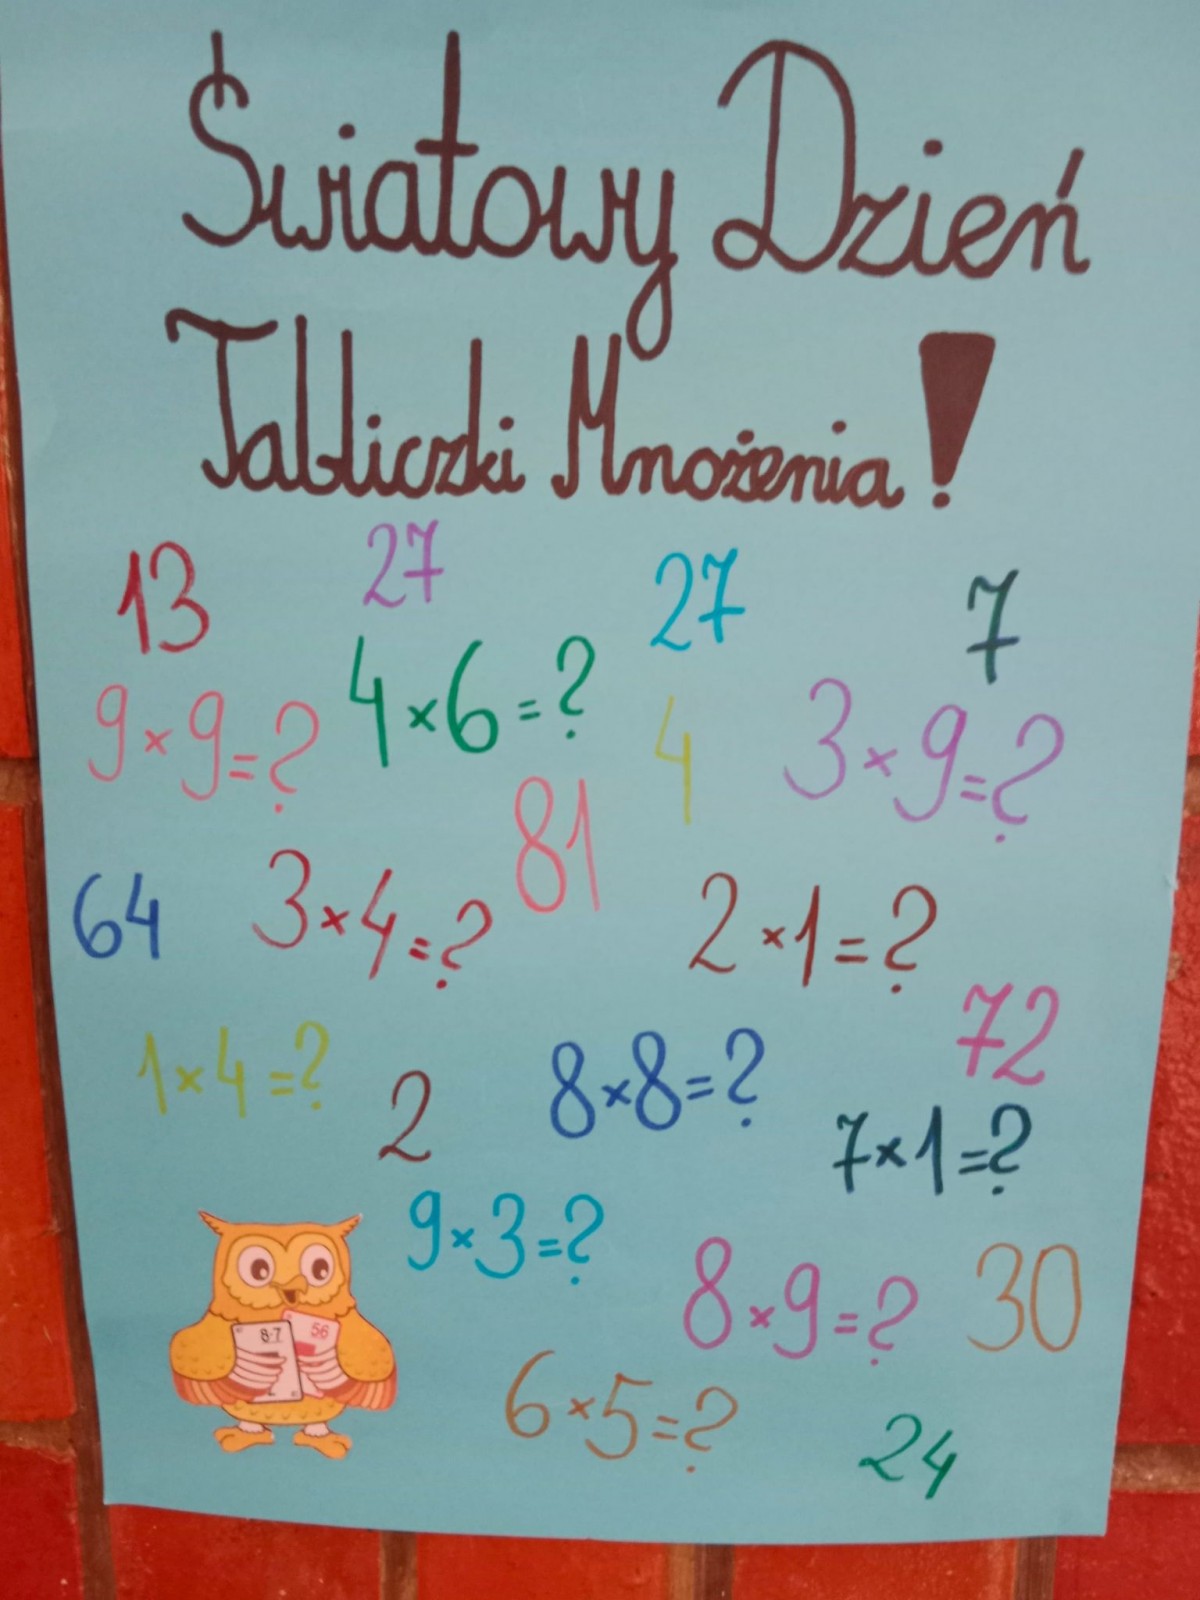 Światowy Dzień
Tabliczki Mnożenia!
13
27
27
7
9×9=?
4×6=?
4
3×9=?
81
64
3×4=?
2×1=?
72
1×4=?
2
8×8=?
7×1=?
9×3=?
8×9=?
30
8·7
56
6×5=?
24